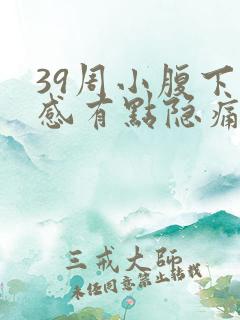 39周小腹下
感有點隐痛
三戒大师
未经同意禁止转载